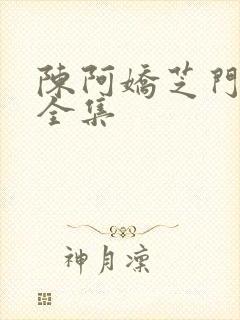 陳阿嬌芝門
全集
神月凜